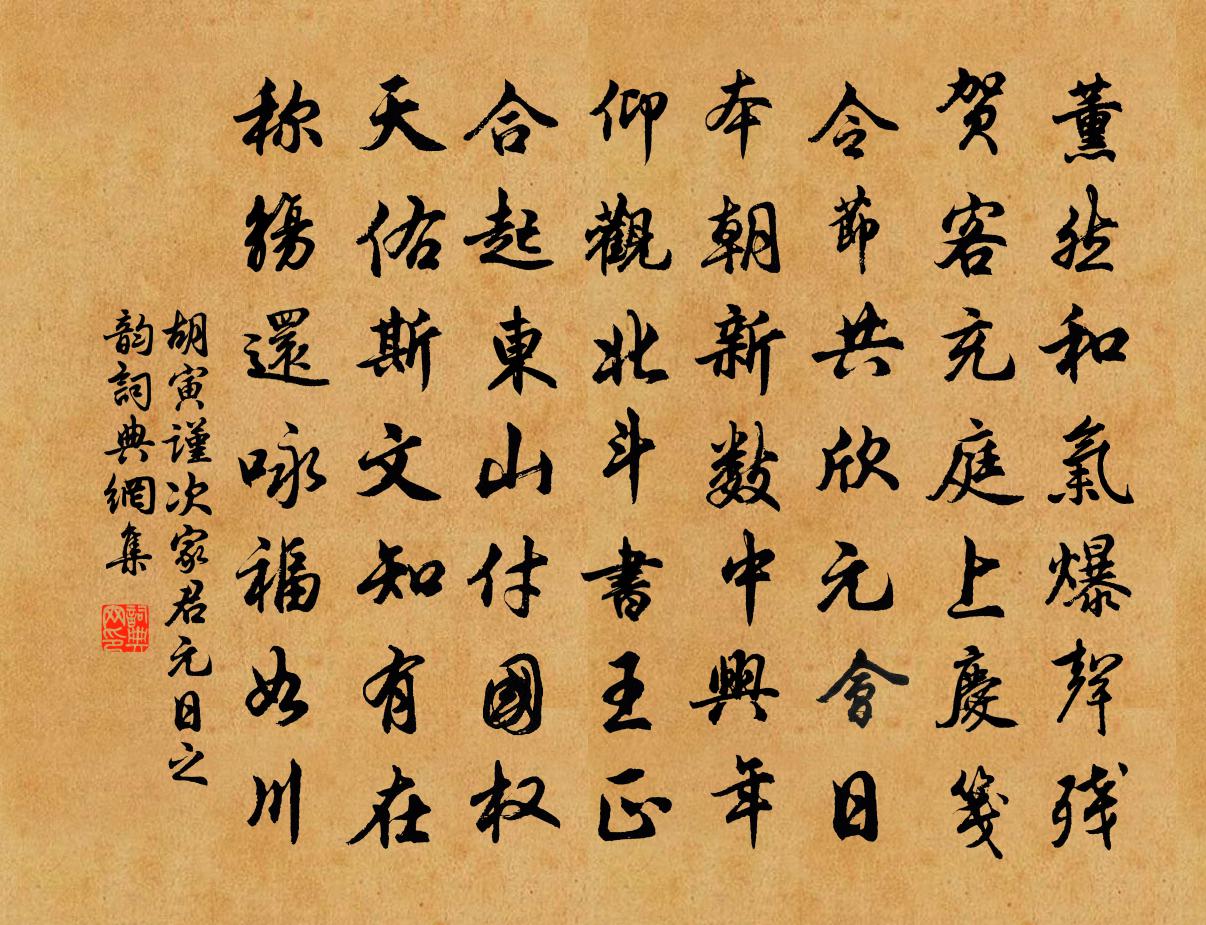 薰然和氣爆聲殘
賀客充庭上慶箋
令節共欣元會日
本朝新數中興年
仰觀北斗書王正
合起東山付國权
天佑斯文知有在
称觴還咏福如川
胡寅謹次家君元日之
韵詞典網集
詞典網印